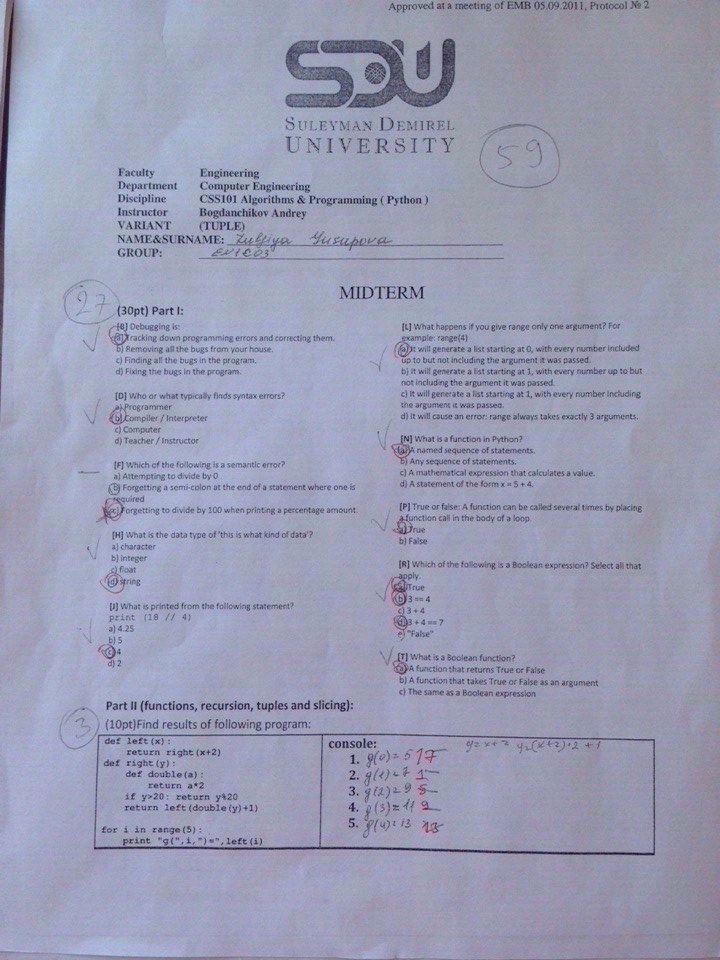 Approved at a meeting of EMB 05.09.2011, Protocol № 2
SDU
SULEYMAN DEMIREL
UNIVERSITY
59
Faculty Engineering
Department Computer Engineering
Discipline CSS101 Algorithms & Programming ( Python )
Instructor Bogdanchikov Andrey
VARIANT (TUPLE)
NAME&SURNAME: Zulfiya Yusupova
GROUP:
MIDTERM
27
(30pt) Part I:
[B] Debugging is:
a) Tracking down programming errors and correcting them.
b) Removing all the bugs from your house.
c) Finding all the bugs in the program.
d) Fixing the bugs in the program.
[D] Who or what typically finds syntax errors?
a) Programmer
b) Compiler / Interpreter
c) Computer
d) Teacher / Instructor
[F] Which of the following is a semantic error?
a) Attempting to divide by 0
b) Forgetting a semi-colon at the end of a statement where one is
required
c) Forgetting to divide by 100 when printing a percentage amount.
[H] What is the data type of 'this is what kind of data'?
a) character
b) integer
c) float
d) string
[J] What is printed from the following statement?
print (18 // 4)
a) 4.25
b) 5
c) 4
d) 2
[L] What happens if you give range only one argument? For
example: range(4)
a) It will generate a list starting at 0, with every number included
up to but not including the argument it was passed.
b) It will generate a list starting at 1, with every number up to but
not including the argument it was passed.
c) It will generate a list starting at 1, with every number including
the argument it was passed.
d) It will cause an error: range always takes exactly 3 arguments.
[N] What is a function in Python?
a) A named sequence of statements.
b) Any sequence of statements.
c) A mathematical expression that calculates a value.
d) A statement of the form x = 5 + 4.
[P] True or false: A function can be called several times by placing
a function call in the body of a loop.
a) True
b) False
[R] Which of the following is a Boolean expression? Select all that
apply.
a) True
b) 3 == 4
c) 3 + 4
d) 3 + 4 == 7
e) "False"
[T] What is a Boolean function?
a) A function that returns True or False
b) A function that takes True or False as an argument
c) The same as a Boolean expression
Part II (functions, recursion, tuples and slicing):
3
(10pt)Find results of following program:
def left(x):
return right(x+2)
def right(y):
def double(a):
return a*2
if y>20: return y%20
return left(double(y)+1)
for i in range(5):
print "g(",i,")=",left(i)
console: y=x+2 y=(x+2)·2+1
1. g(0)=5 17
2. g(1)=7 1
3. g(2)=9 5
4. g(3)=11 9
5. g(4)=13 13